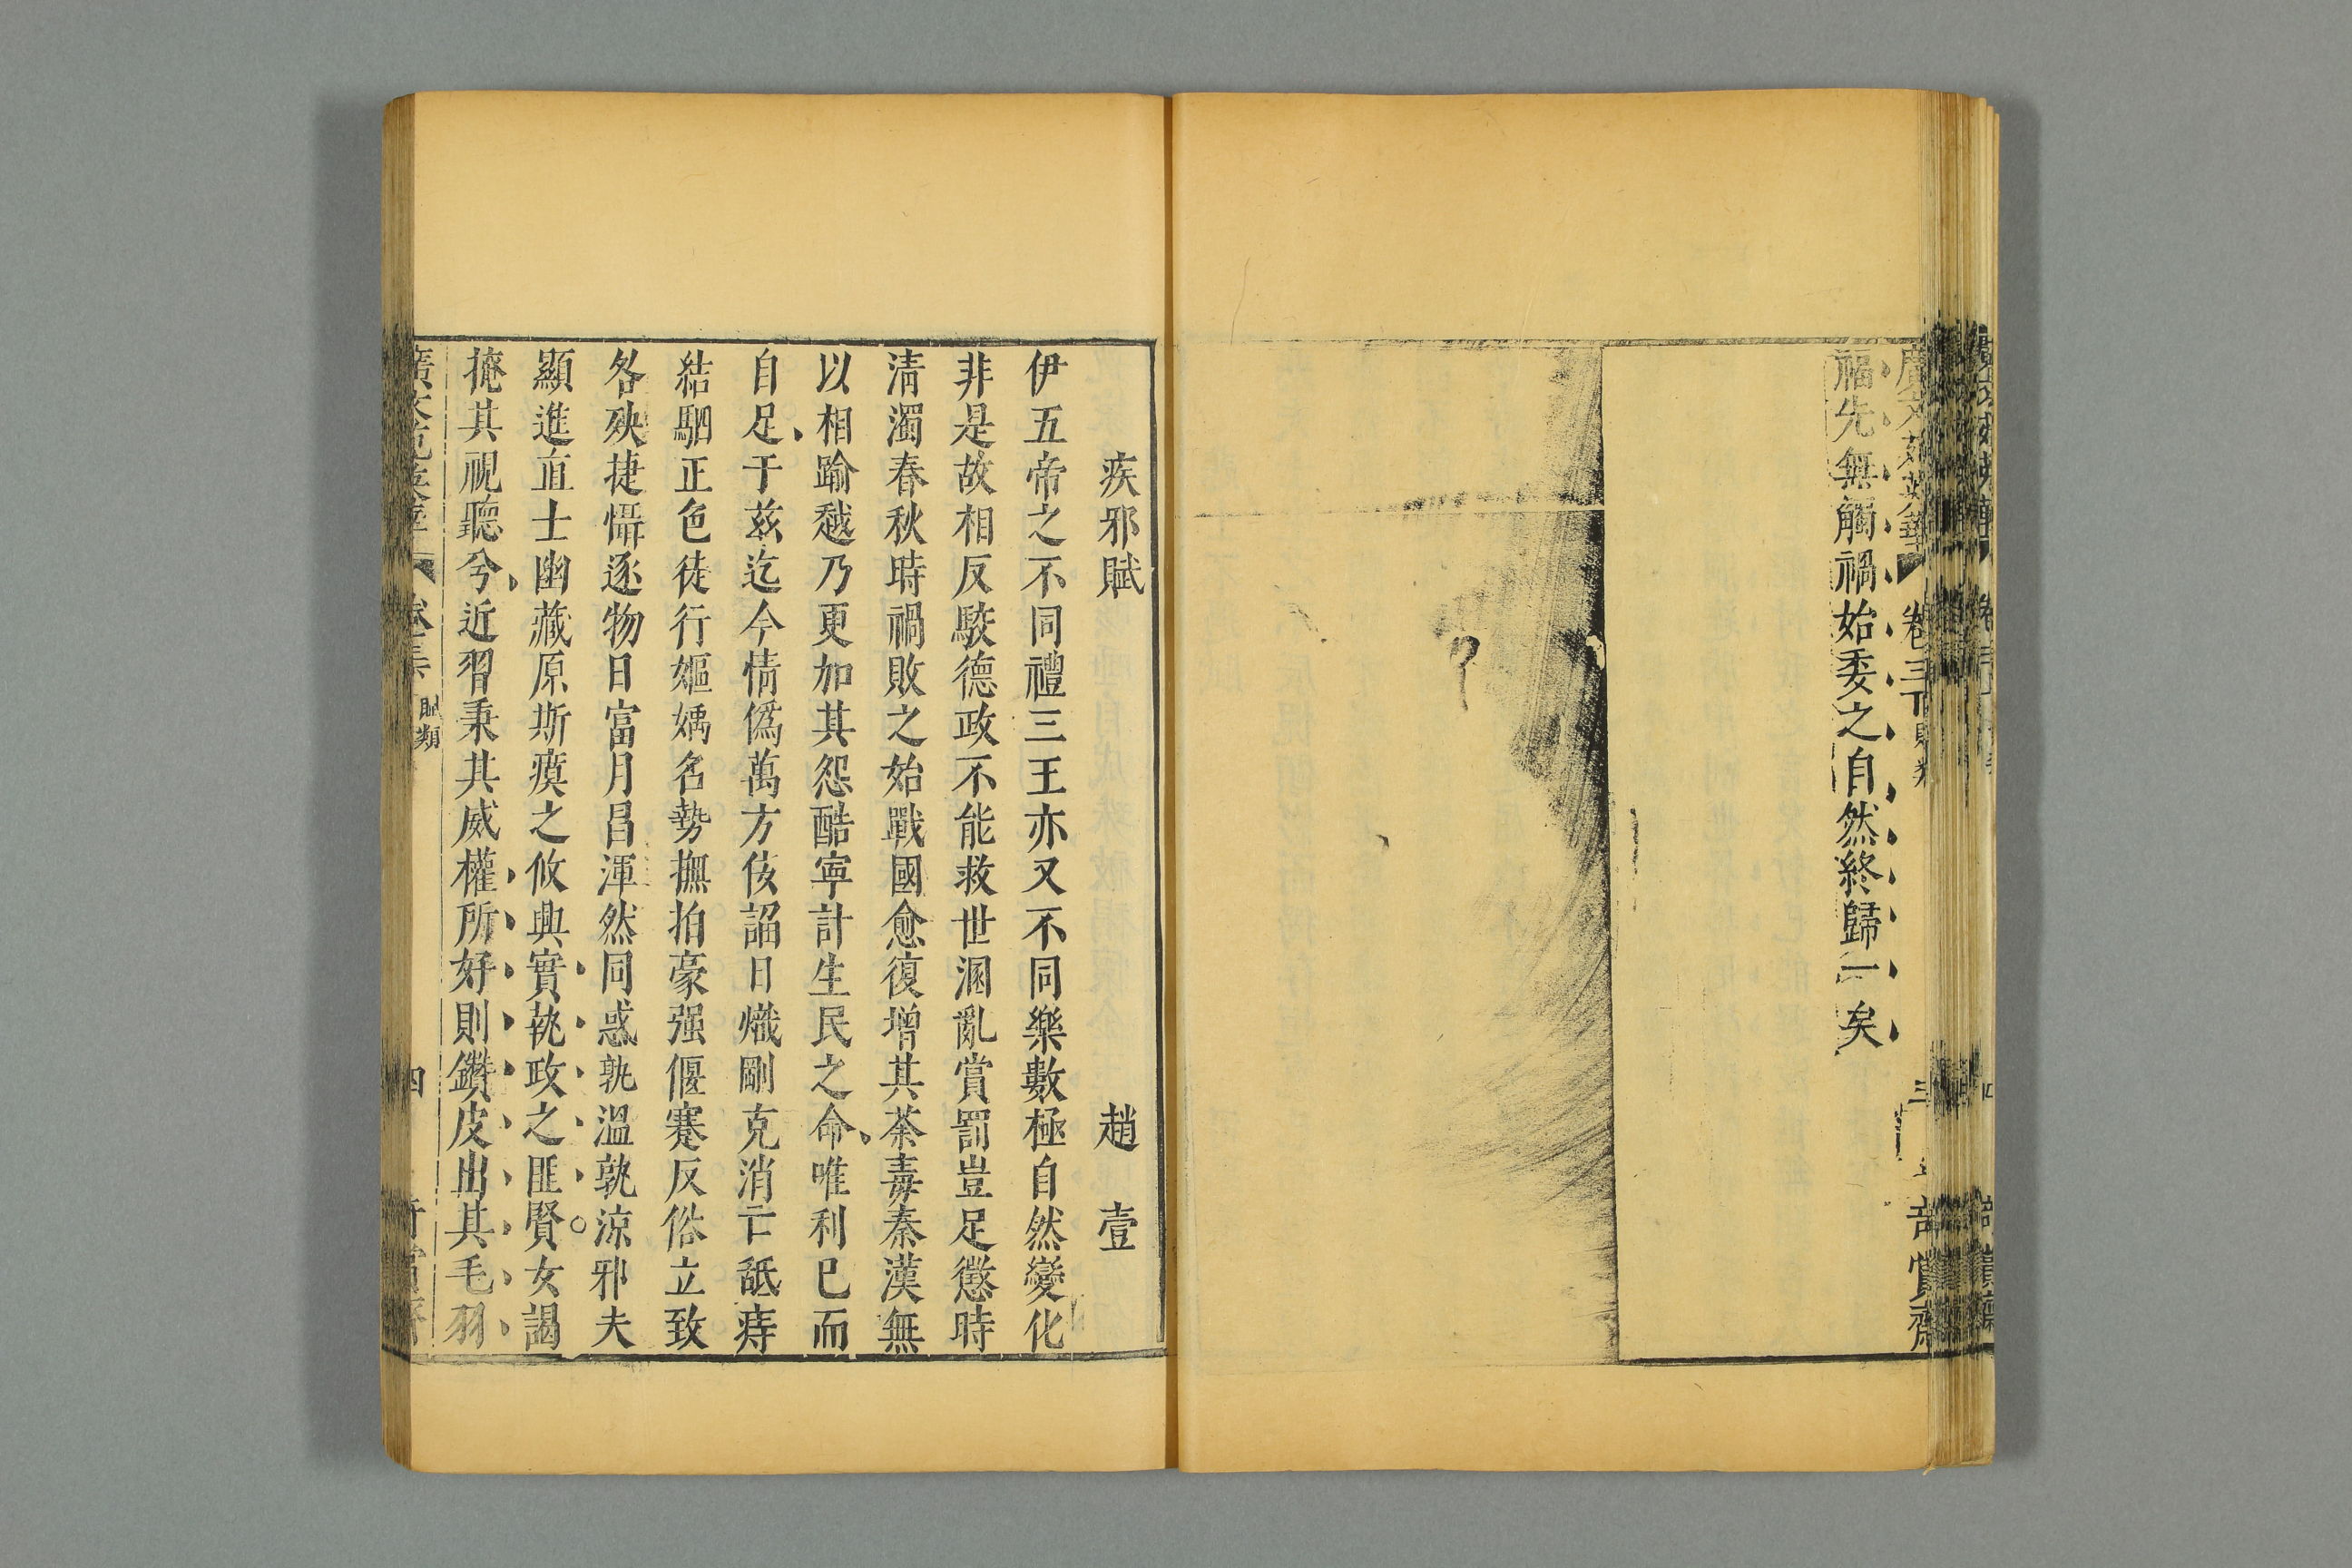 福先無觸禍始委之自然終歸一矣
疾邪賦 趙壹
伊五帝之不同禮三王亦又不同樂數極自然變化
非是故相反駮德政不能救世溷亂賞罰豈足懲時
清濁春秋時禍敗之始戰國愈復增其荼毒秦漢無
以相踰越乃更加其怨酷寧計生民之命唯利己而
自足于兹迄今情僞萬方佞謟日熾剛克消亡舐痔
結駟正色徒行嫗媀名勢撫拍豪强偃蹇反俗立致
咎殃捷懾逐物日富月昌渾然同惑孰溫孰涼邪夫
顯進直士幽藏原斯瘼之攸興實執政之匪賢女謁
掩其視聽兮近習秉其威權所好則鑽皮出其毛羽